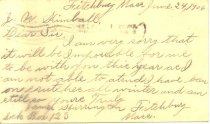 Fitchburg Mass June 24, 1906
Dear Sir
I am very sorry that
it will be impossible for me
to be with you this year as I
am not able to attend, have been
all winter and am
still yours Truly
Fitchburg
Box 123 Mass.